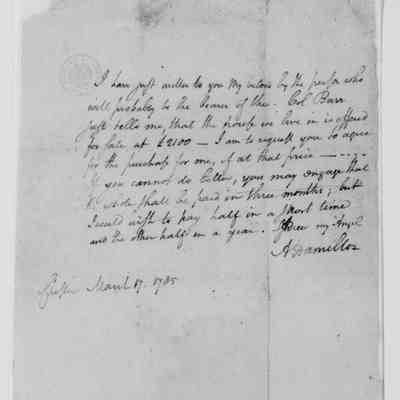 I have just written to you My beloved by the person who
will probably be the bearer of this. Col Burr
just tells me, that the house we live in is offered
for sale at £2100 — I am to request you to agree
for the purchase for me, if at that price — - - - -
If you cannot do better, you may engage that
the whole shall be paid in three months; but
I could wish to pay half in a short time
and the other half in a year. Adieu my Angel
A Hamilton
March 17. 1785